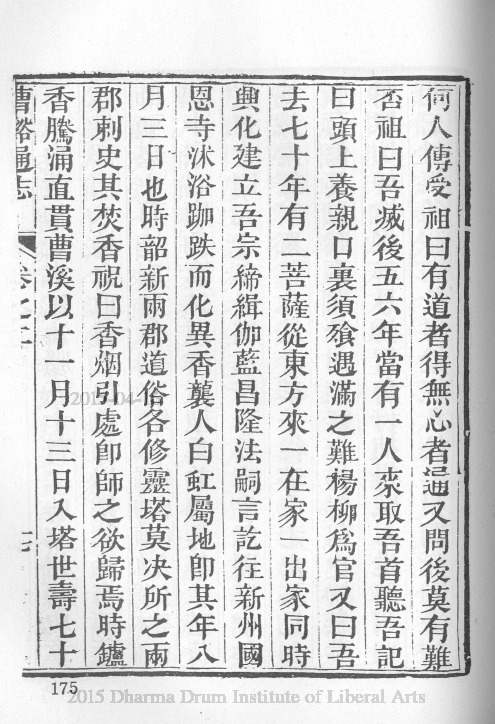 何人傳受祖曰有道者得無心者通又問後莫有難
否祖曰吾滅後五六年當有一人來取吾首聽吾記
曰頭上養親口裏須飱遇滿之難楊柳為官又曰吾
去七十年有二菩薩從東方來一在家一出家同時
興化建立吾宗締緝伽藍昌隆法嗣言訖往新州國
恩寺沐浴跏趺而化異香襲人白虹屬地卽其年八
月三日也時韶新兩郡道俗各修靈塔莫决所之兩
郡刺史其焚香祝曰香烟引處卽師之欲歸焉時鑪
香騰涌直貫曹溪以十一月十三日入塔世壽七十
曹谿通志
卷之二
175
2015 Dharma Drum Institute of Liberal Arts